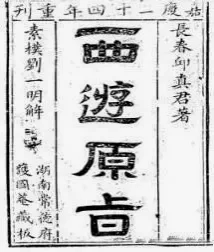 嘉慶二十四年重刊
長春邱真君著
西遊原旨
素樸劉一明解
湖南常德府
護國菴藏板